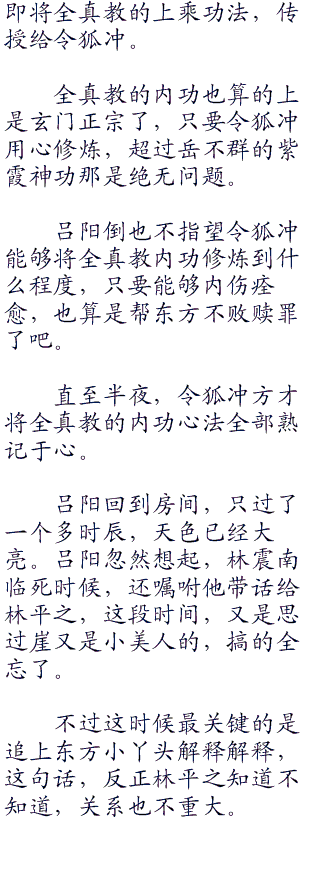 即将全真教的上乘功法，传
授给令狐冲。
全真教的内功也算的上
是玄门正宗了，只要令狐冲
用心修炼，超过岳不群的紫
霞神功那是绝无问题。
吕阳倒也不指望令狐冲
能够将全真教内功修炼到什
么程度，只要能够内伤痊
愈，也算是帮东方不败赎罪
了吧。
直至半夜，令狐冲方才
将全真教的内功心法全部熟
记于心。
吕阳回到房间，只过了
一个多时辰，天色已经大
亮。吕阳忽然想起，林震南
临死时候，还嘱咐他带话给
林平之，这段时间，又是思
过崖又是小美人的，搞的全
忘了。
不过这时候最关键的是
追上东方小丫头解释解释，
这句话，反正林平之知道不
知道，关系也不重大。